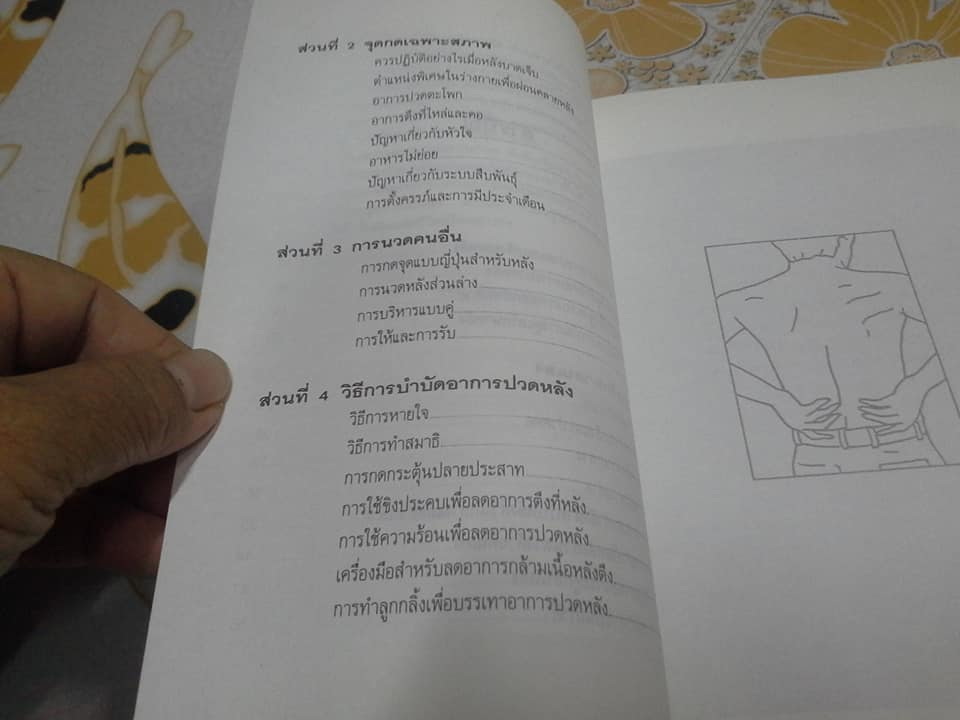 ส่วนที่ 2 จุดกดเฉพาะสภาพ
ควรปฏิบัติอย่างไรเมื่อหลังบาดเจ็บ
ตำแหน่งพิเศษในร่างกายเพื่อผ่อนคลายหลัง
อาการปวดตะโพก
อาการตึงที่ไหล่และคอ
ปัญหาเกี่ยวกับหัวใจ
อาหารไม่ย่อย
ปัญหาเกี่ยวกับระบบสืบพันธุ์
การตั้งครรภ์และการมีประจำเดือน
ส่วนที่ 3 การนวดคนอื่น
การกดจุดแบบญี่ปุ่นสำหรับหลัง
การนวดหลังส่วนล่าง
การบริหารแบบคู่
การให้และการรับ
ส่วนที่ 4 วิธีการบำบัดอาการปวดหลัง
วิธีการหายใจ
วิธีการทำสมาธิ
การกดกระตุ้นปลายประสาท
การใช้ขิงประคบเพื่อลดอาการตึงที่หลัง
การใช้ความร้อนเพื่อลดอาการปวดหลัง
เครื่องมือสำหรับลดอาการกล้ามเนื้อหลังตึง
การทำลูกกลิ้งเพื่อบรรเทาอาการปวดหลัง